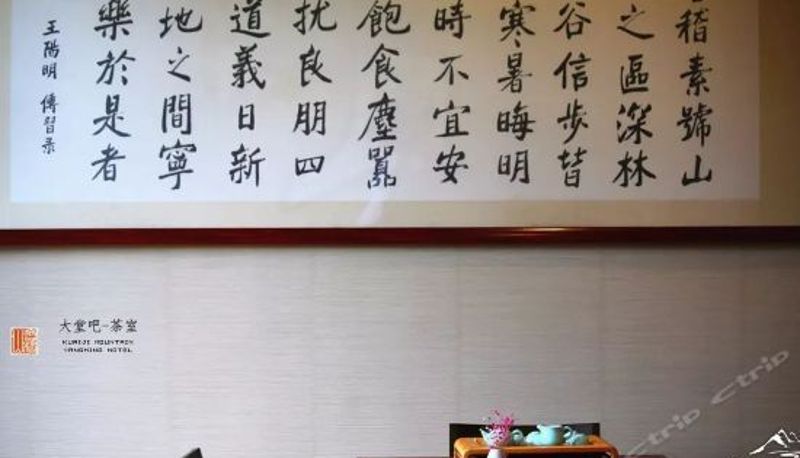 稽素號山
之區深林
谷信步皆
寒暑晦明
時不宜安
飽食塵囂
扰良朋四
道義日新
地之間寧
樂於是者
王陽明 傳習录
大堂吧-茶室
KUAIJI MOUNTAIN
YANGMING HOTEL
Ctrip Ctrip